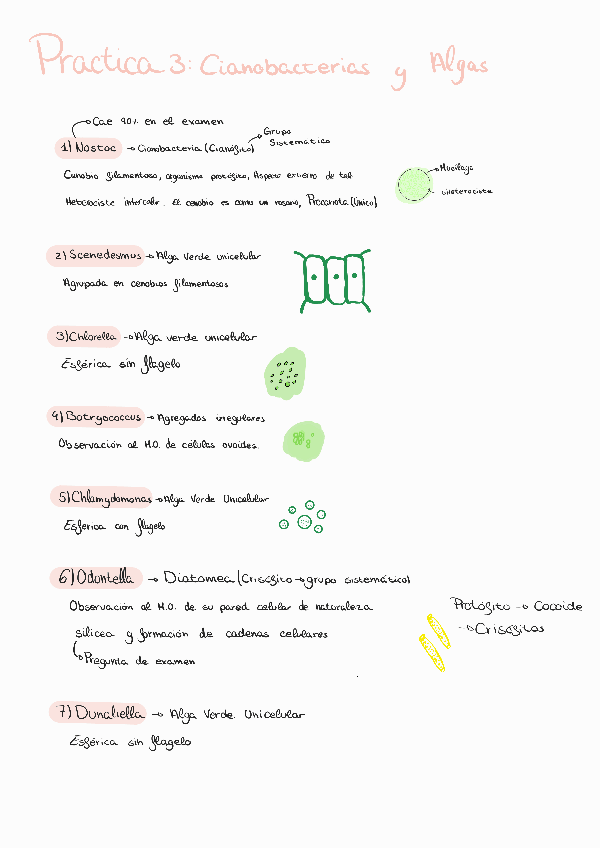 Practica 3: Cianobacterias y Algas
Cae 90% en el examen
1) Nostoc → Cianobacteria (Cianófito)
Grupo
Sistemático
Cenobio filamentoso, organismo protófito, Aspecto externo de tal
Heterociste intercalar. El cenobio es como un rosario, Procariota (Único)
Mucílago
2) Scenedesmus → Alga Verde unicelular
Agrupada en cenobios filamentosos
3) Chlorella → Alga verde unicelular
Esférica sin flagelo
4) Botryococcus → Agregados irregulares
Observación al M.O. de células ovoides.
5) Chlamydomonas → Alga Verde Unicelular
Esférica con flagelo
6) Odontella → Diatomea (Crisófito → grupo sistemático)
Observación al M.O. de su pared celular de naturaleza
silícea y formación de cadenas celulares
Pregunta de examen
Protófito → Cocoide
→ Crisófitos
7) Dunaliella → Alga Verde. Unicelular
Esférica sin flagelo